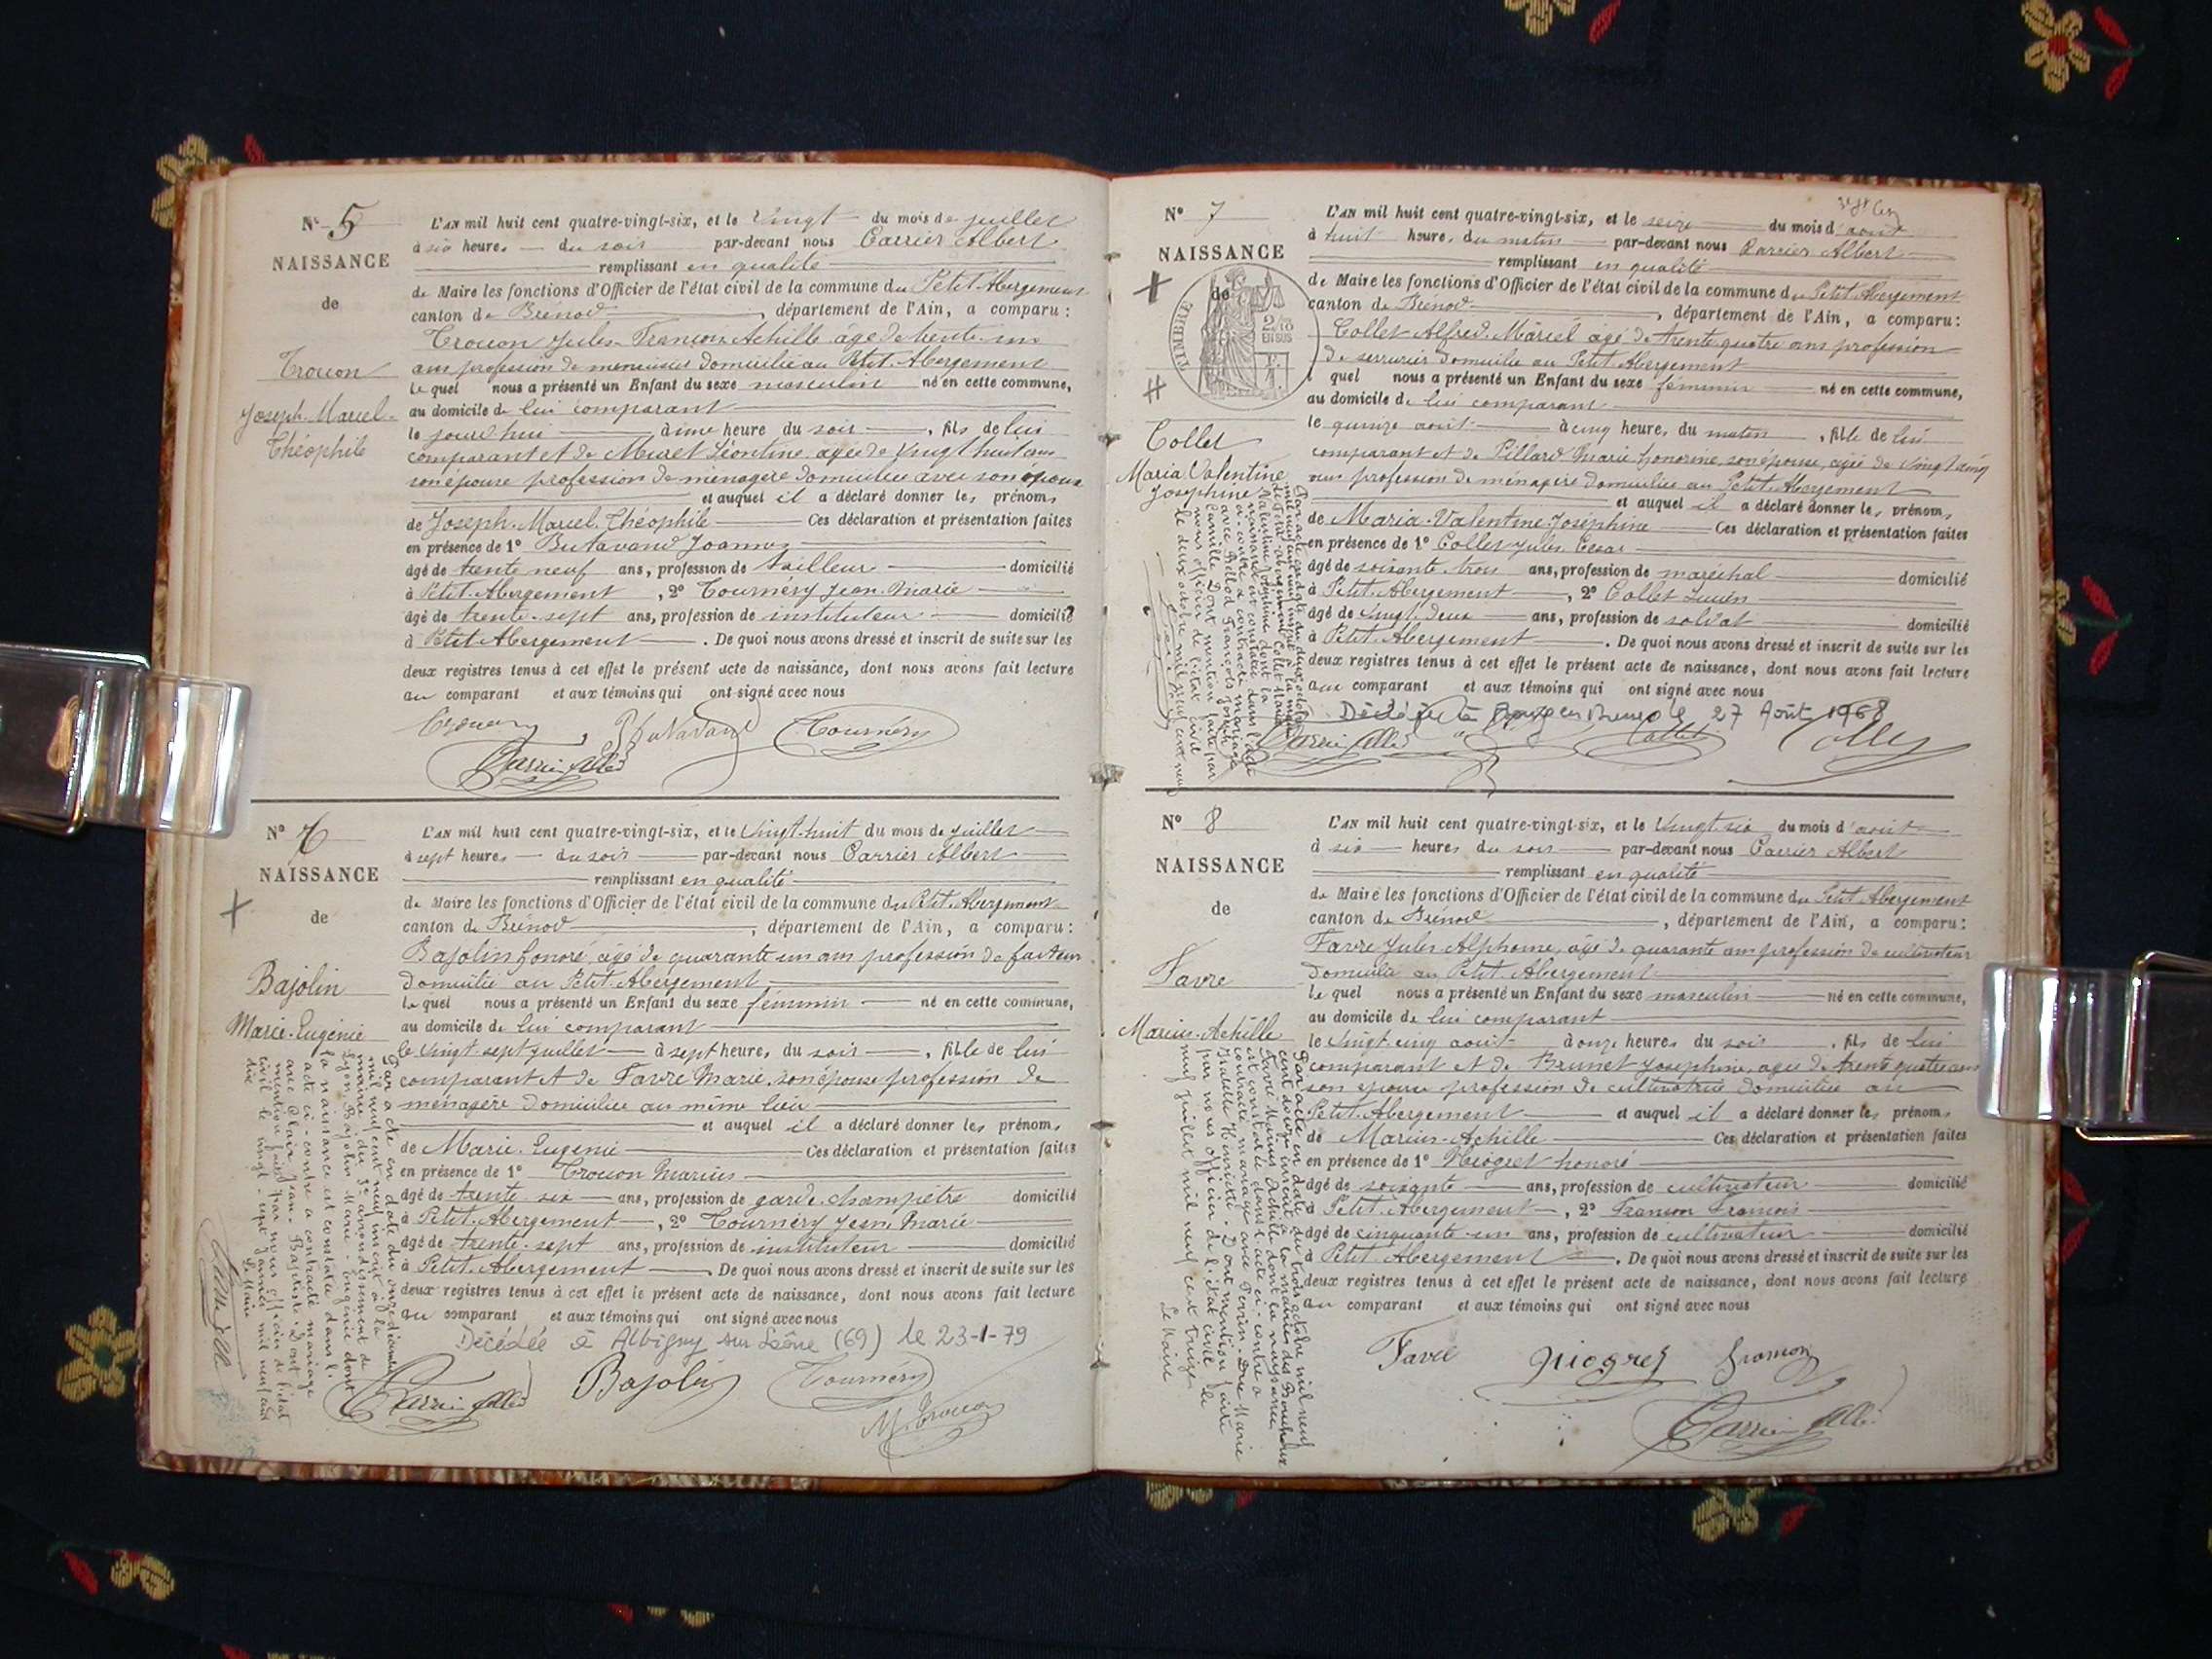 N° 5
NAISSANCE
de
Trouon
Joseph-Marcel-
Théophile
L'AN mil huit cent quatre-vingt-six, et le Vingt du mois de juillet
à six heures du soir par-devant nous Carrier Albert
remplissant en qualité
de Maire les fonctions d'Officier de l'état civil de la commune du Petit Abergement
canton de Brénod, département de l'Ain, a comparu :
Trouon Jules François Achille âgé de trente un
ans profession de menuisier domicilié au Petit Abergement
lequel nous a présenté un Enfant du sexe masculin né en cette commune,
au domicile de lui comparant
le jourd'hui à une heure du soir, fils de lui
comparant et de Muret Léontine âgée de vingt huit ans
son épouse profession de ménagère domiciliée avec son époux
et auquel il a déclaré donner les prénoms
de Joseph-Marcel Théophile Ces déclaration et présentation faites
en présence de 1° Butavand Joannes
âgé de trente neuf ans, profession de tailleur domicilié
à Petit-Abergement, 2° Tournéry Jean Marie
âgé de trente-sept ans, profession de instituteur domicilié
à Petit Abergement. De quoi nous avons dressé et inscrit de suite sur les
deux registres tenus à cet effet le présent acte de naissance, dont nous avons fait lecture
au comparant et aux témoins qui ont signé avec nous
Trouon Butavand Tournéry
Carrier Albert
N° 6
NAISSANCE
de
Bajolin
Marie-Eugénie
L'AN mil huit cent quatre-vingt-six, et le Vingt-huit du mois de juillet
à sept heures du soir par-devant nous Carrier Albert
remplissant en qualité
de Maire les fonctions d'Officier de l'état civil de la commune du Petit Abergement
canton de Brénod, département de l'Ain, a comparu :
Bajolin honoré, âgé de quarante un ans profession de facteur
domicilié au Petit-Abergement
lequel nous a présenté un Enfant du sexe féminin né en cette commune,
au domicile de lui comparant
le vingt-sept juillet à sept heures du soir, fille de lui
comparant et de Favre Marie, son épouse profession de
ménagère domiciliée au même lieu
et auquel il a déclaré donner les prénoms
de Marie-Eugénie Ces déclaration et présentation faites
en présence de 1° Trouon Marius
âgé de trente six ans, profession de garde-champêtre domicilié
à Petit-Abergement, 2° Tournéry Jean Marie
âgé de trente-sept ans, profession de instituteur domicilié
à Petit-Abergement. De quoi nous avons dressé et inscrit de suite sur les
deux registres tenus à cet effet le présent acte de naissance, dont nous avons fait lecture
au comparant et aux témoins qui ont signé avec nous
Décédée à Albigny sur Saône (69) le 23-1-79
Carrier Albert Bajolin Tournéry
M. Trouon
Par acte en date du onze décembre
mil neuf cent neuf inscrit à la
mairie du 3e arrondissement de
Lyon, Bajolin Marie-Eugénie dont
la naissance est constatée dans l'
acte ci-contre a contracté mariage
avec Clair Jean-Baptiste. Dont
mention faite par nous officier de l'état
civil le vingt-sept janvier mil neuf cent
dix
Le Maire
N° 7
NAISSANCE
de
TIMBRE
2/10
EN SUS
Collet
Maria Valentine
Joséphine
L'AN mil huit cent quatre-vingt-six, et le seize du mois d'août
à huit heures du matin par-devant nous Carrier Albert
remplissant en qualité
de Maire les fonctions d'Officier de l'état civil de la commune du Petit Abergement
canton de Brénod, département de l'Ain, a comparu :
Collet Alfred Marcel âgé de trente quatre ans profession
de serrurier domicilié au Petit Abergement
lequel nous a présenté un Enfant du sexe féminin né en cette commune,
au domicile de lui comparant
le quinze août à cinq heures du matin, fille de lui
comparant et de Pillard Marie honorine, son épouse, âgée de vingt cinq
ans profession de ménagère domiciliée au Petit Abergement
et auquel il a déclaré donner les prénoms
de Maria-Valentine-Joséphine Ces déclaration et présentation faites
en présence de 1° Collet Jules César
âgé de soixante-trois ans, profession de maréchal domicilié
à Petit-Abergement, 2° Collet Lucien
âgé de vingt-deux ans, profession de soldat domicilié
à Petit-Abergement. De quoi nous avons dressé et inscrit de suite sur les
deux registres tenus à cet effet le présent acte de naissance, dont nous avons fait lecture
aux comparant et aux témoins qui ont signé avec nous
Décédée à Bourg en Bresse le 27 Août 1968
Carrier Albert Collet Collet
N° 8
NAISSANCE
de
Favre
Marius-Achille
L'AN mil huit cent quatre-vingt-six, et le vingt-six du mois d'août
à six heures du soir par-devant nous Carrier Albert
remplissant en qualité
de Maire les fonctions d'Officier de l'état civil de la commune du Petit Abergement
canton de Brénod, département de l'Ain, a comparu :
Favre Jules Alphonse, âgé de quarante ans profession de cultivateur
domicilié au Petit-Abergement
lequel nous a présenté un Enfant du sexe masculin né en cette commune,
au domicile de lui comparant
le vingt-cinq août à onze heures du soir, fils de lui
comparant et de Brunet Joséphine, âgée de trente quatre ans
son épouse profession de cultivatrice domiciliée au
Petit-Abergement et auquel il a déclaré donner les prénoms
de Marius-Achille Ces déclaration et présentation faites
en présence de 1° Niogret honoré
âgé de soixante ans, profession de cultivateur domicilié
à Petit-Abergement, 2° Framon François
âgé de cinquante-un ans, profession de cultivateur domicilié
à Petit Abergement. De quoi nous avons dressé et inscrit de suite sur les
deux registres tenus à cet effet le présent acte de naissance, dont nous avons fait lecture
au comparant et aux témoins qui ont signé avec nous
Favre Niogret Framon
Carrier Albert
Par acte en date du trois octobre mil neuf
cent douze inscrit à la mairie des
Favre Marius Achille dont la naissance
est constatée dans l'acte ci-contre a
contracté mariage avec Perrin Marie
Henriette. Dont mention faite
par nous officier de l'état civil le
neuf juillet mil neuf cent treize
Le Maire